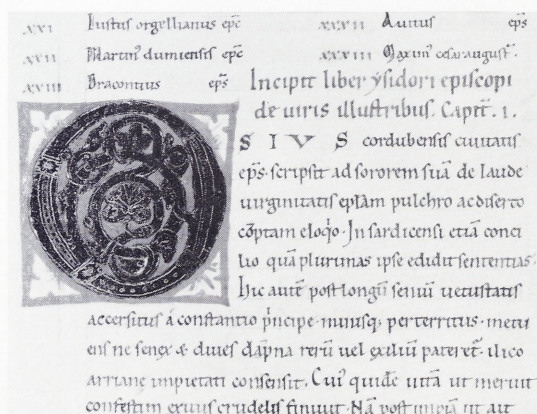 xxi Iustus orgellianus epc̄
xxii Martin᾿ dumiensis epc̄
xxiii Dracontius ep̄s
xxxii Auitus ep̄s
xxxiii Maxim᾿ cesaraugust᾿.
Incipit liber ysidori episcopi
de uiris illustribus. Capit̄. i.
O S I V S cordubensis ciuitatis
ep̄s. scripsit ad sororem suā de laude
uirginitatis eplām pulchro ac diserto
cōptam eloq̇o. In sardicensi etiā conci
lio quā plurimas ipse edidit sententias.
Hic autē post longū seniū uetustatis
accersitus a constantio ṗncipe. minisq; perterritus. metu
ens ne senex & diues dāpna rerū uel exiliū pateret᾿. ilico
arriane impietati consensit. Cui᾿ quidē uitā ut meruit
confestim exitus crudelis finiuit. Nā post impiā ut ait